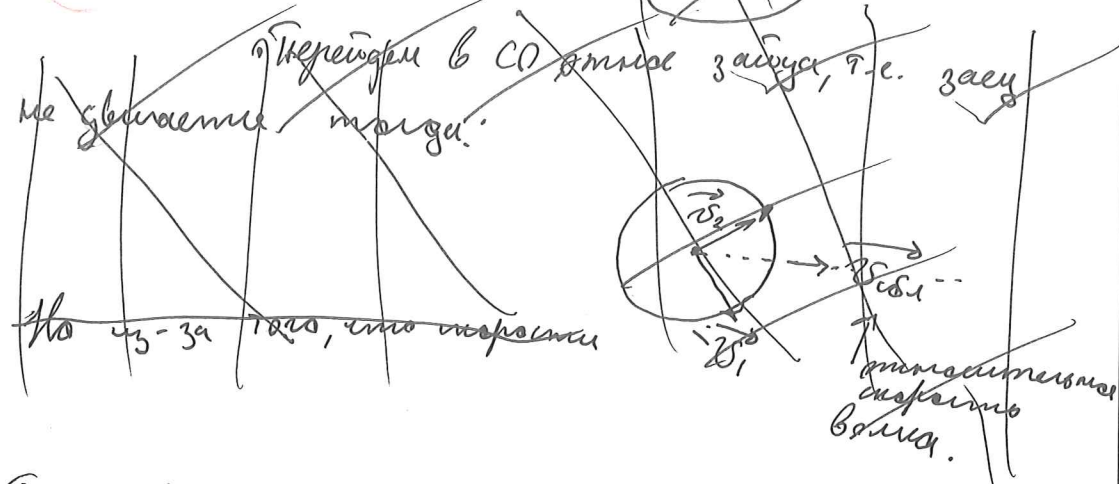 Перейдем в СО относ зайца, т.е. заец
не двигается тогда:
v₂
vсбл
v₁
Но из-за того, что скорости
относительная
скорость
волка.